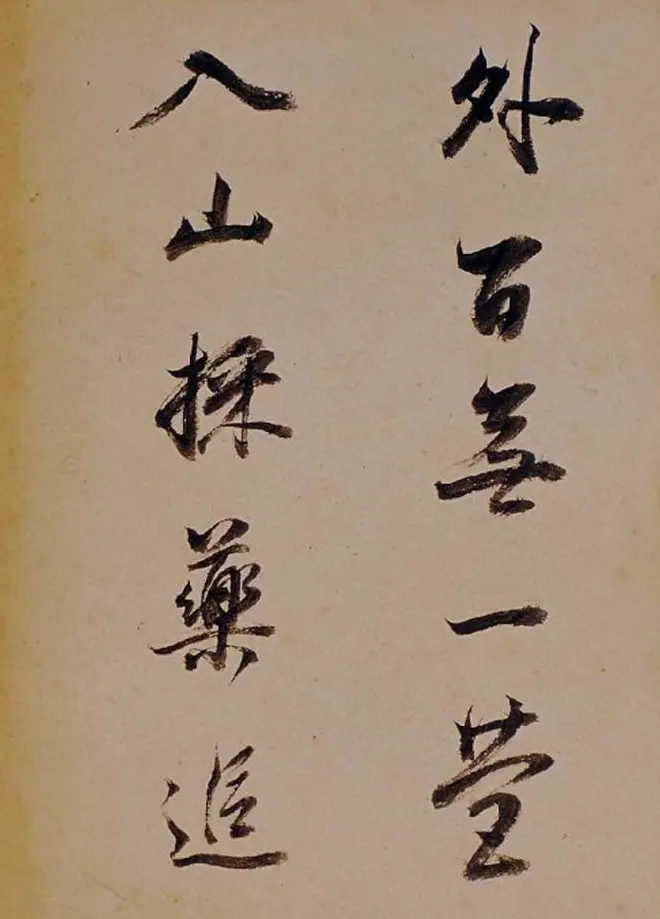 外百無一營
入山採藥追